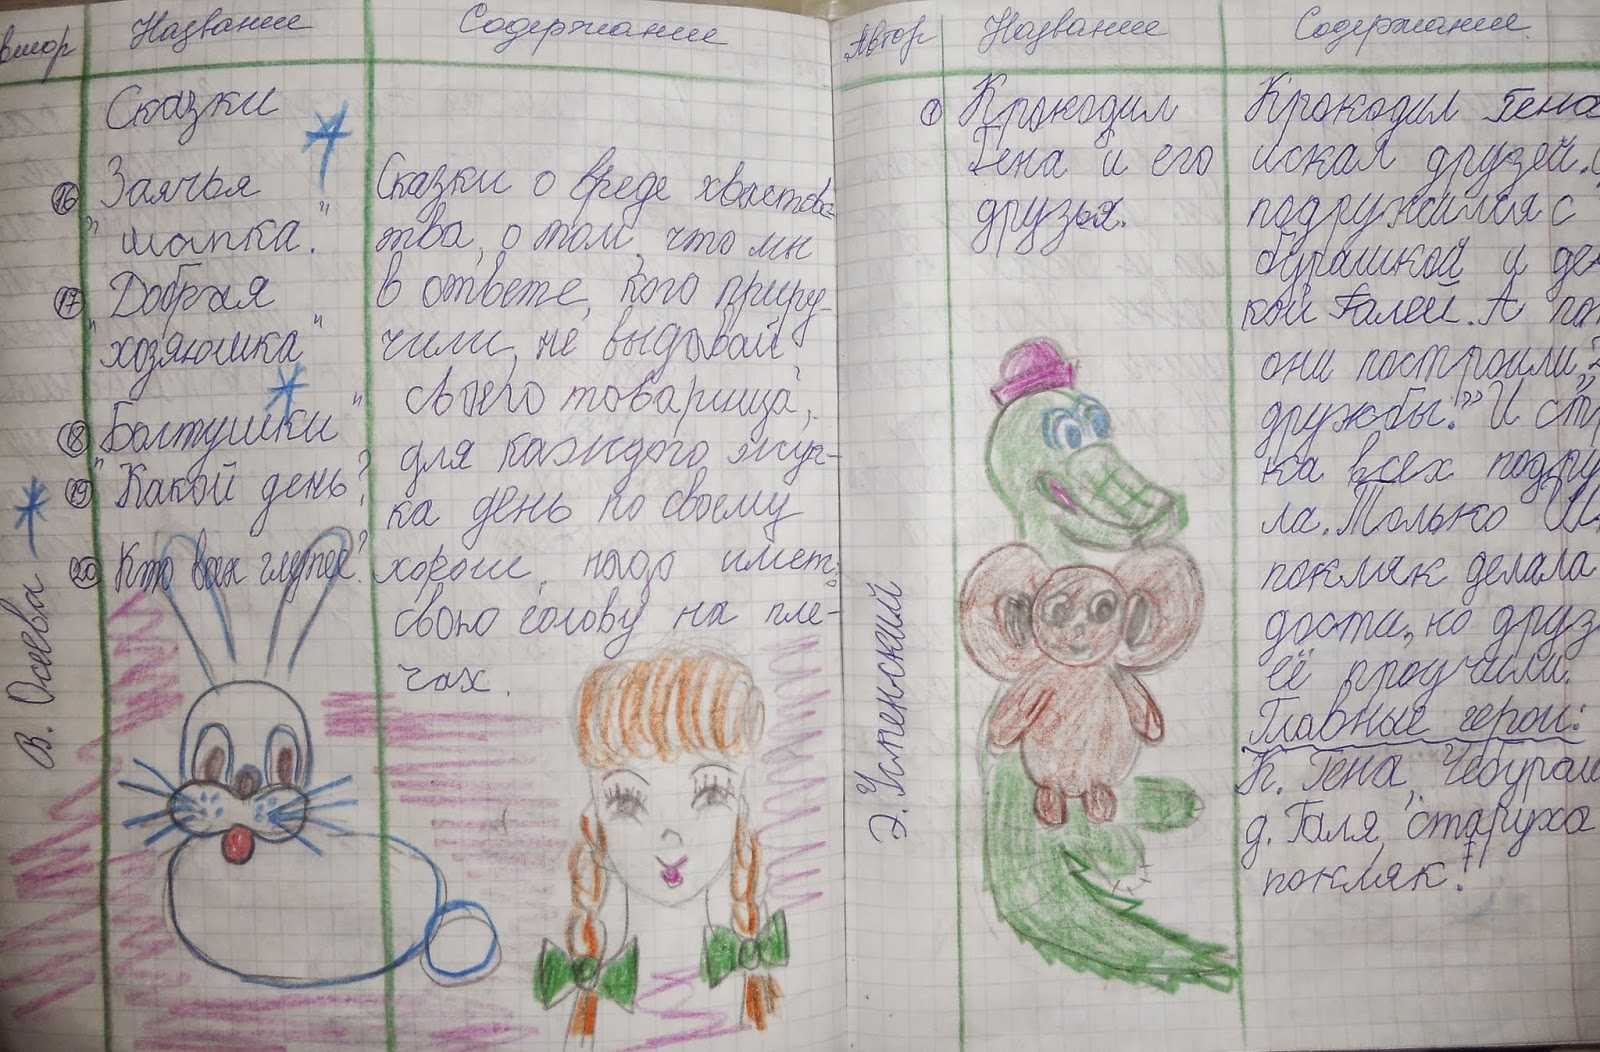 Автор Название Содержание
Сказки
16 Заячья
"шапка."
17 Добрая
"хозяюшка"
18 Болтушки"
19 "Какой день?
20 Кто всех глупее?
В. Осеева
Сказки о вреде хвастовс-
тва, о том, что мы
в ответе, кого приру-
чили, не выдавай
своего товарища,
для каждого жуч-
ка день по своему
хорош, надо имет
свою голову на пле-
чах.
Автор Название Содержание
1 Крокодил
Гена и его
друзья.
Э. Успенский
Крокодил Гена
искал друзей.
подружился с
бурашкой и де
кой Галей. А по
они построили
дружбы." И ст
ка всех подру
ла. Только
покляк делала
доста, но друз
её проучили.
Главные герои:
К. Гена, Чебураш
д. Галя, старуха
покляк.